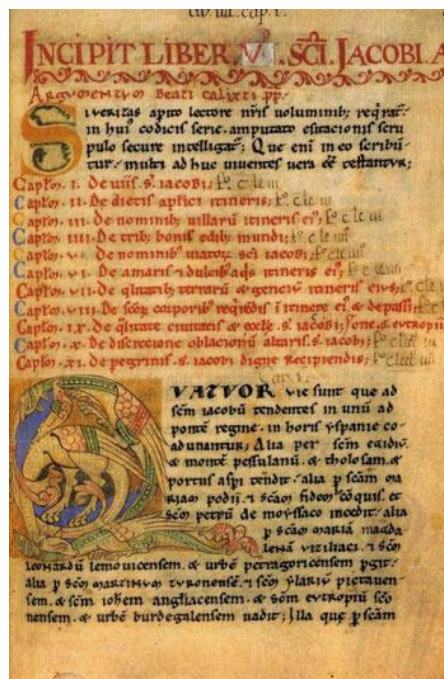 INCIPIT LIBER V. SCI. JACOBI. A
Argumentum Beati Calixti pp.
Si veritas a pito lectore nris voluminib; reqrat.
in hui codicis serie. amputato esitacionis scru
pulo secure intelligat; Que eni in eo scribu
tur. multi ad huc viventes vera ee testantur;
Caplm. I. De viis. s. iacobi;
Caplm. II. De dietis aplici itineris;
Caplm. III. De nominib; villaru itineris ei;
Caplm. IIII. De trib; bonis edib; mundi;
Caplm. V. De nominib viator sci iacobi;
Caplm. VI. De amaris & dulcib aqs itineris ei;
Caplm. VII. De qlitatib; terraru & gentiu itineris eius;
Caplm. VIII. De scor corporib reqrendis i itinere ei. & de passi
Caplm. IX. De qlitate civitatis & eccle. s. iacobi;
Caplm. X. De discrecione oblacionu altaris. s. iacobi;
Caplm. XI. De pegrinis. s. iacobi digne recipiendis;
QVATVOR vie sunt que ad
scm iacobu tendentes in unu ad
ponte regine. in horis yspanie co
adunantur; Alia per scm egidiu.
& monte pessulanu. & tholosam. &
portus aspi tendit. alia p scam ma
riam podii. & scam fidem coquis. et
scm petru de moyssaco incedit. alia
p scam maria magda
lena viziliaci. & scm
leonardu lemovicensem. & urbe petragoricensem pgit.
alia p scm martinum turonense. & scm ylariu pictaven
sem. & scm iohem angliacensem. & scm eutropiu sco
nensem. & urbe burdegalensem vadit; Illa que p scam